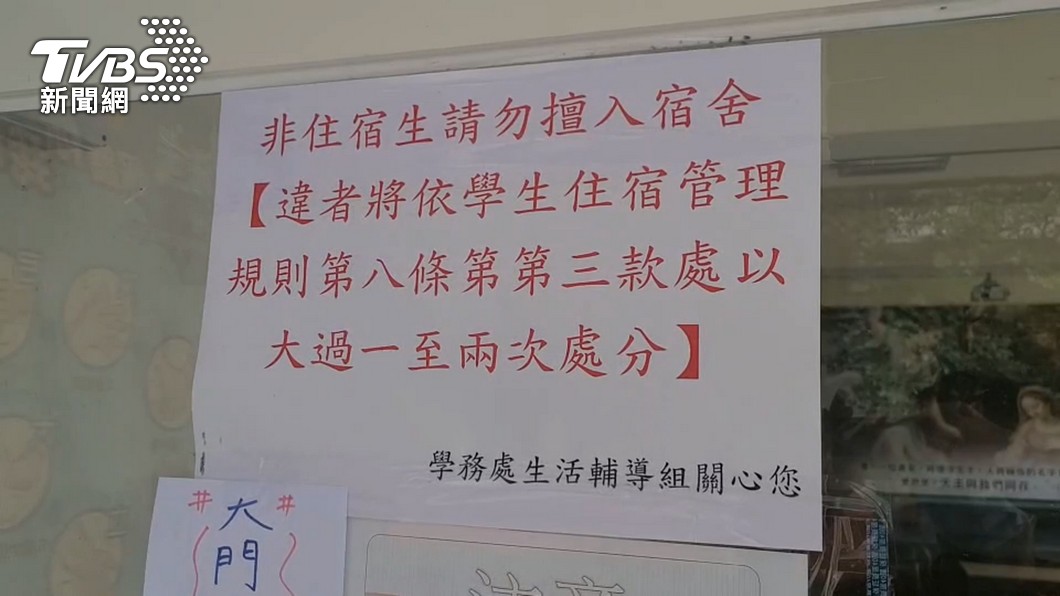 TVBS
新聞網
非住宿生請勿擅入宿舍
【違者將依學生住宿管理
規則第八條第第三款處以
大過一至兩次處分】
學務處生活輔導組關心您
#大#
門